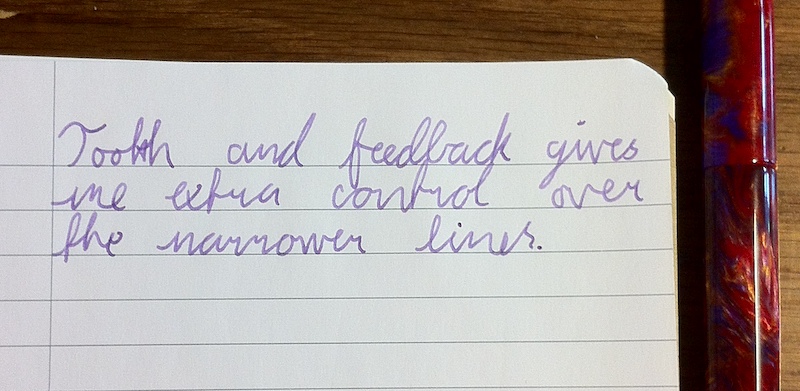 Tooth and feedback gives
me extra control over
the narrower lines.